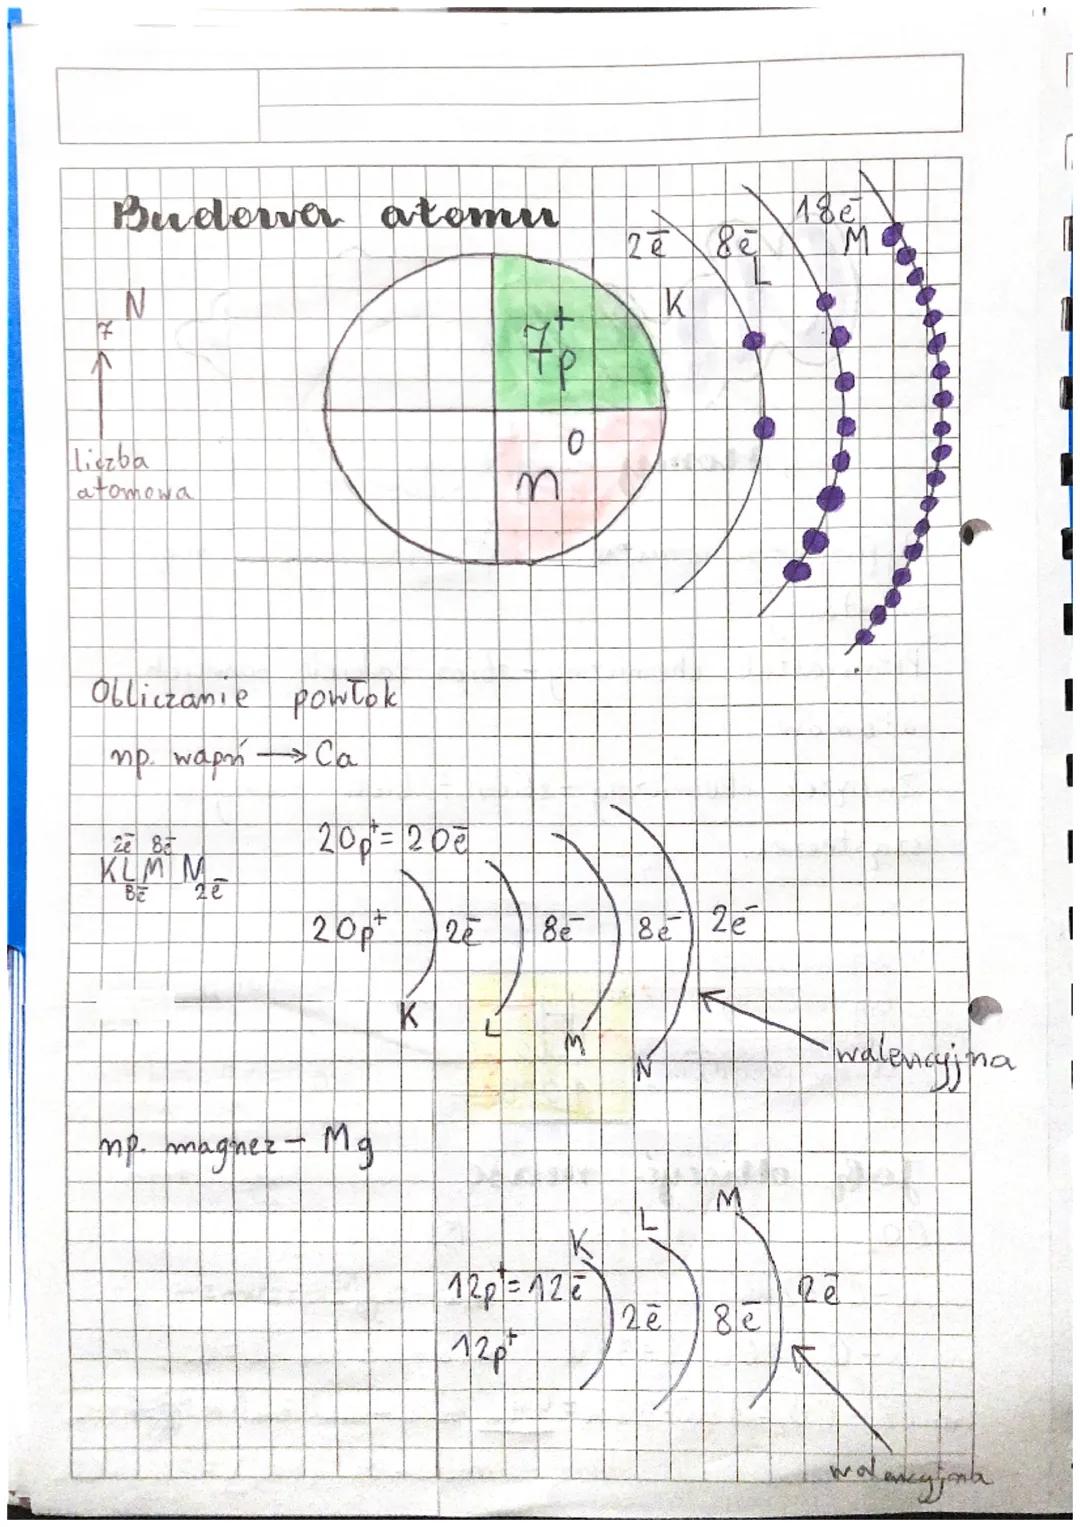 Budowa atomu
2e⁻ 8e⁻ 18e⁻
K L M
₇N
7p⁺
n⁰
liczba
atomowa
Obliczanie powłok
np. wapń → Ca
2e⁻ 8e⁻
KLM N
8e⁻ 2e⁻
20p⁺ = 20e⁻
20p⁺ 2e⁻ 8e⁻ 8e⁻ 2e⁻
K L M N
walencyjna
np. magnez – Mg
K L M
12p⁺ = 12e⁻
12p⁺ 2e⁻ 8e⁻ 2e⁻
walencyjna